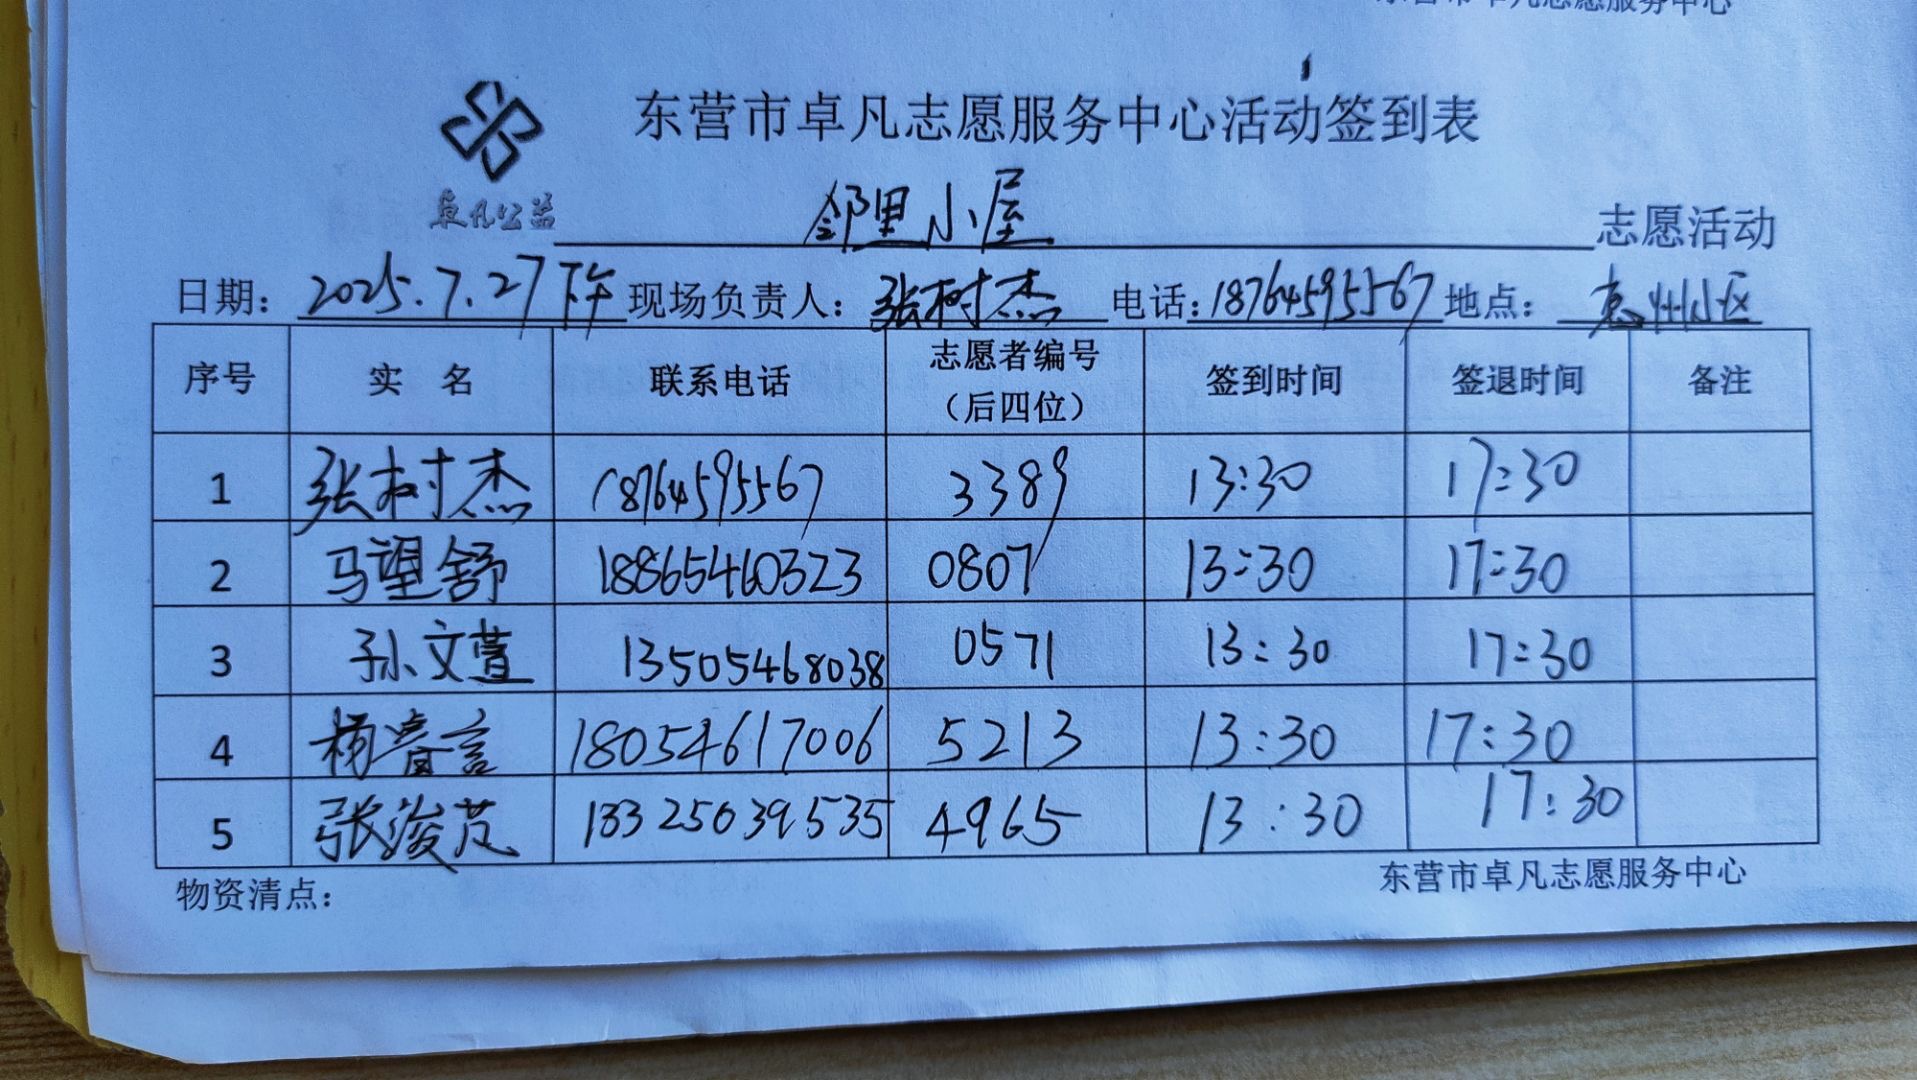 东营市卓凡志愿服务中心
东营市卓凡志愿服务中心活动签到表
卓凡公益
邻里小屋 志愿活动
日期：2025.7.27下午 现场负责人：张树杰 电话：18764595567 地点：惠州小区
序号 实 名 联系电话 志愿者编号（后四位） 签到时间 签退时间 备注
1 张树杰 18764595567 3389 13:30 17:30
2 马望舒 18865460323 0807 13:30 17:30
3 孙文萱 13505468038 0571 13:30 17:30
4 杨睿言 18054617006 5213 13:30 17:30
5 张浚芃 13325039535 4965 13:30 17:30
物资清点： 东营市卓凡志愿服务中心